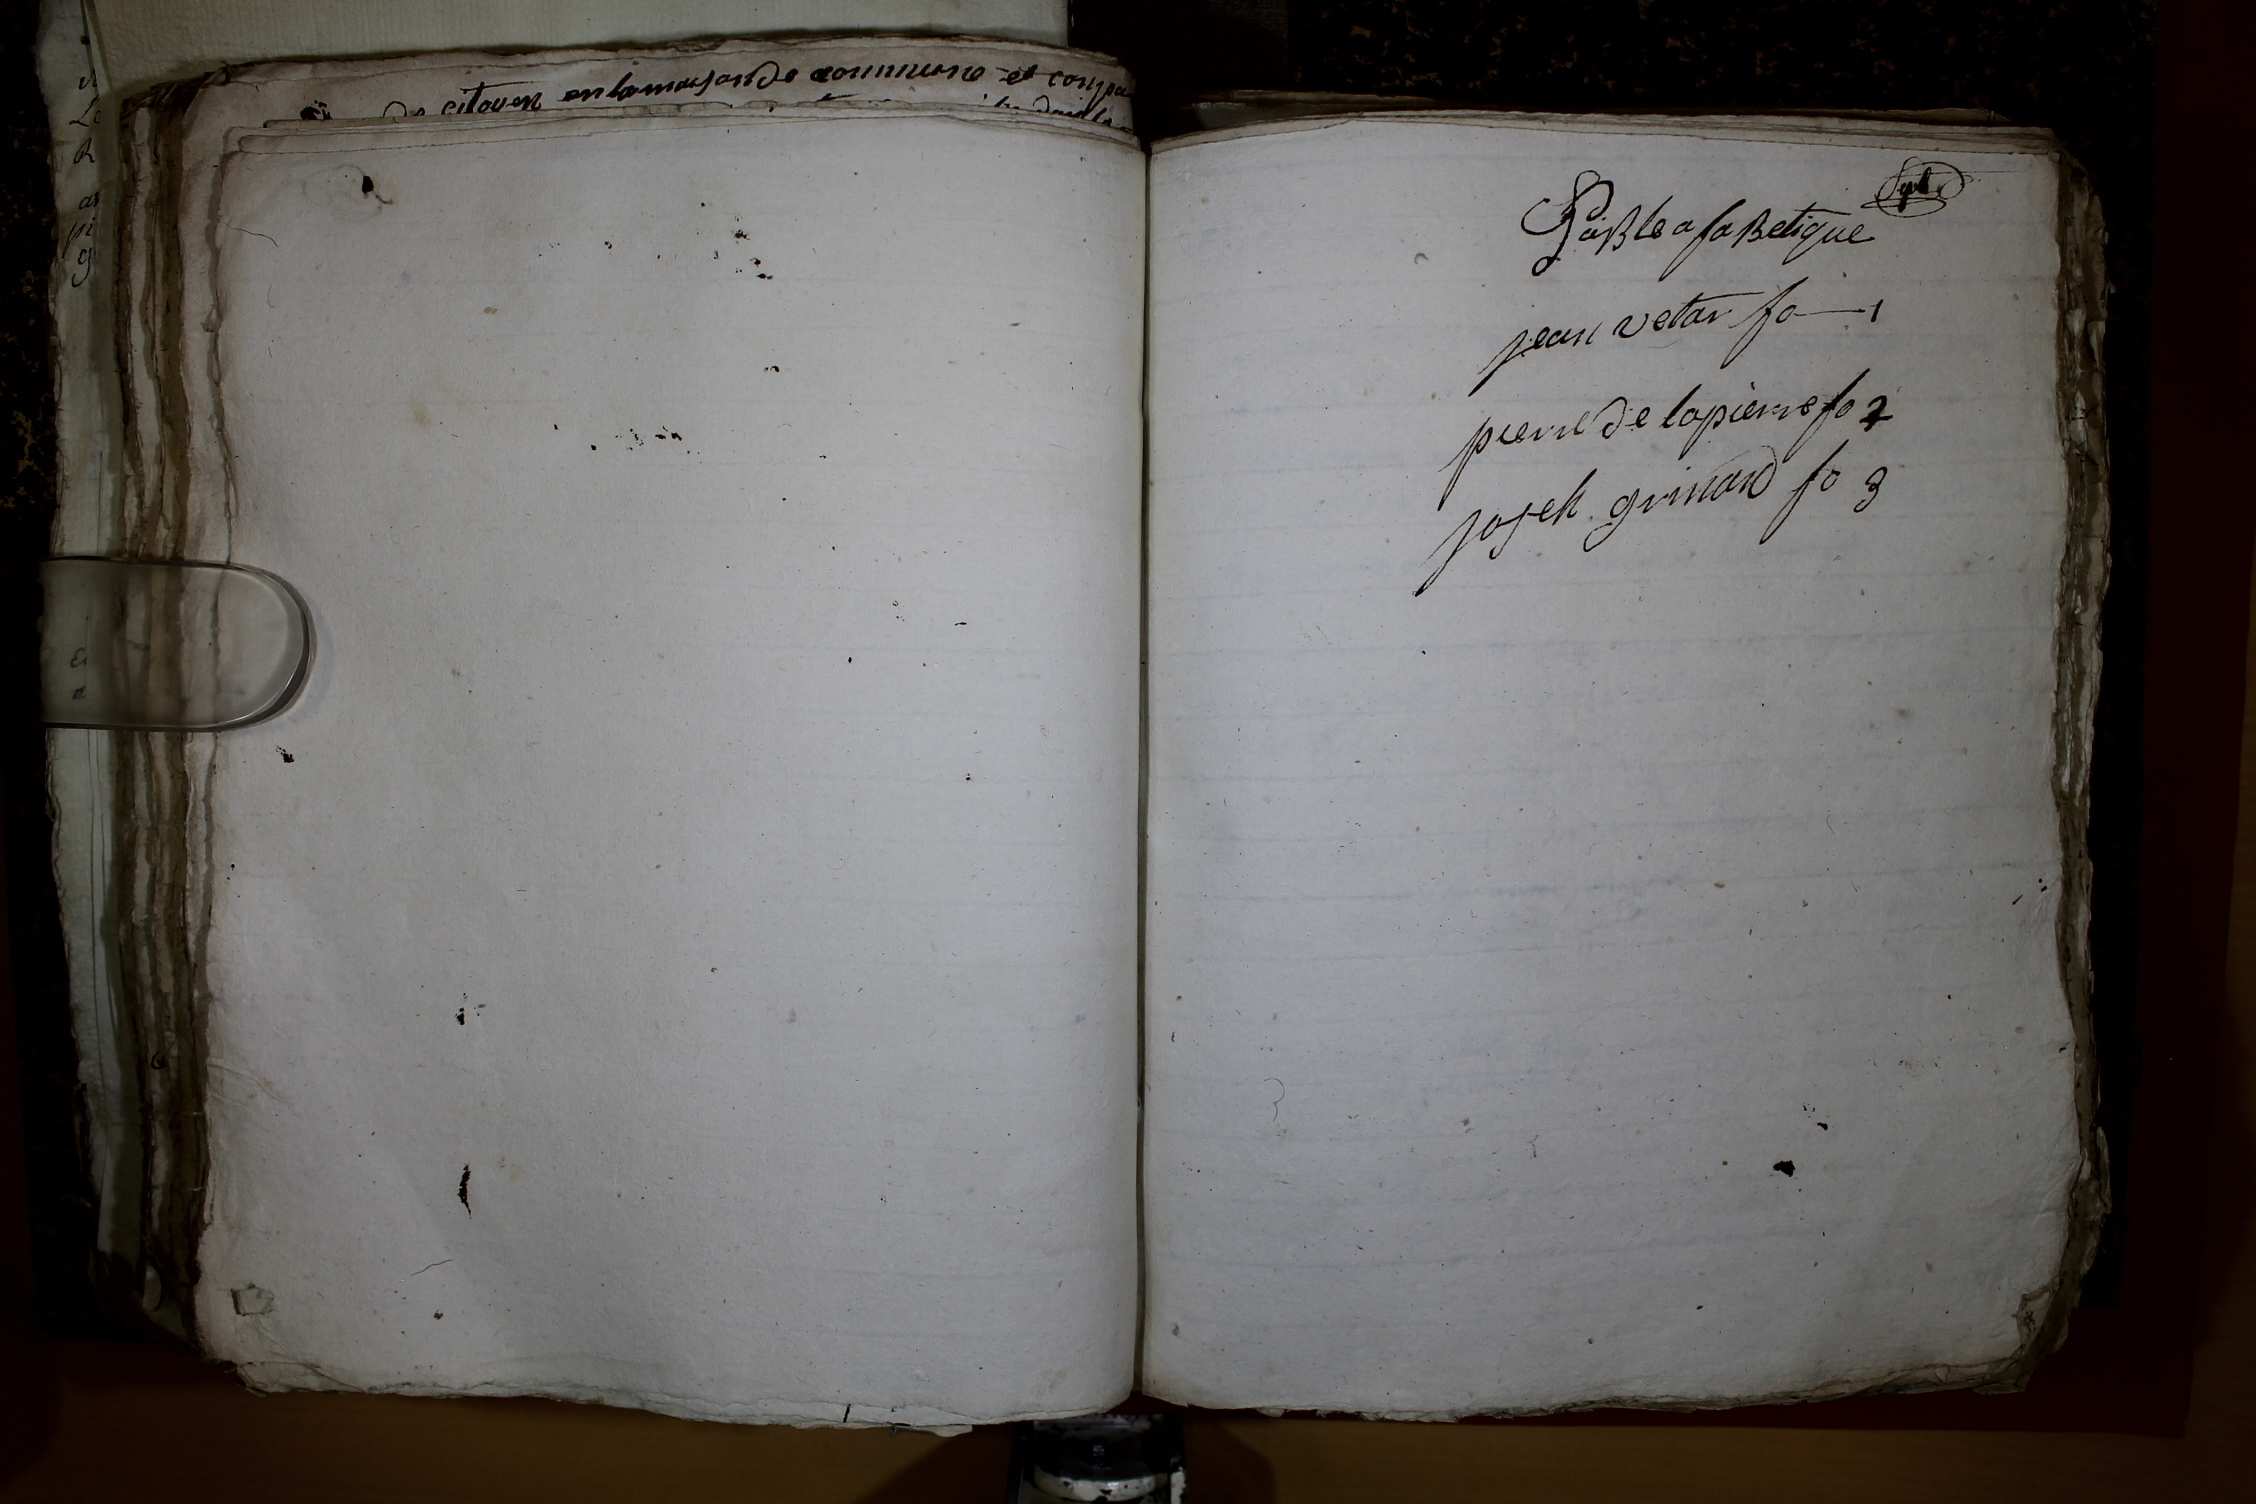 de citoyen en la maison de commune et compa
Sept
Table afaBetique
jean vetar fo 1
pierre de lapierre fo 2
joseh grinard fo 3